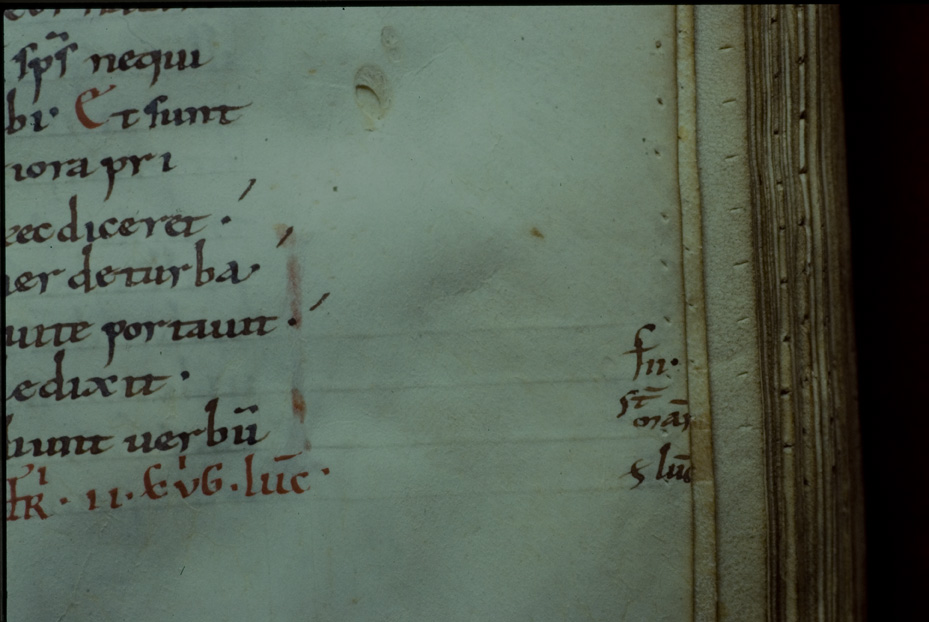 sp̄s nequi
bi. Et sunt
iora pri
ec diceret.
er de turba
uit te portauit.
e dixit.
iunt uerbū
fr̄. ii. EVG. luc̄.
f̄ii.
st̄
orār
s luc̄